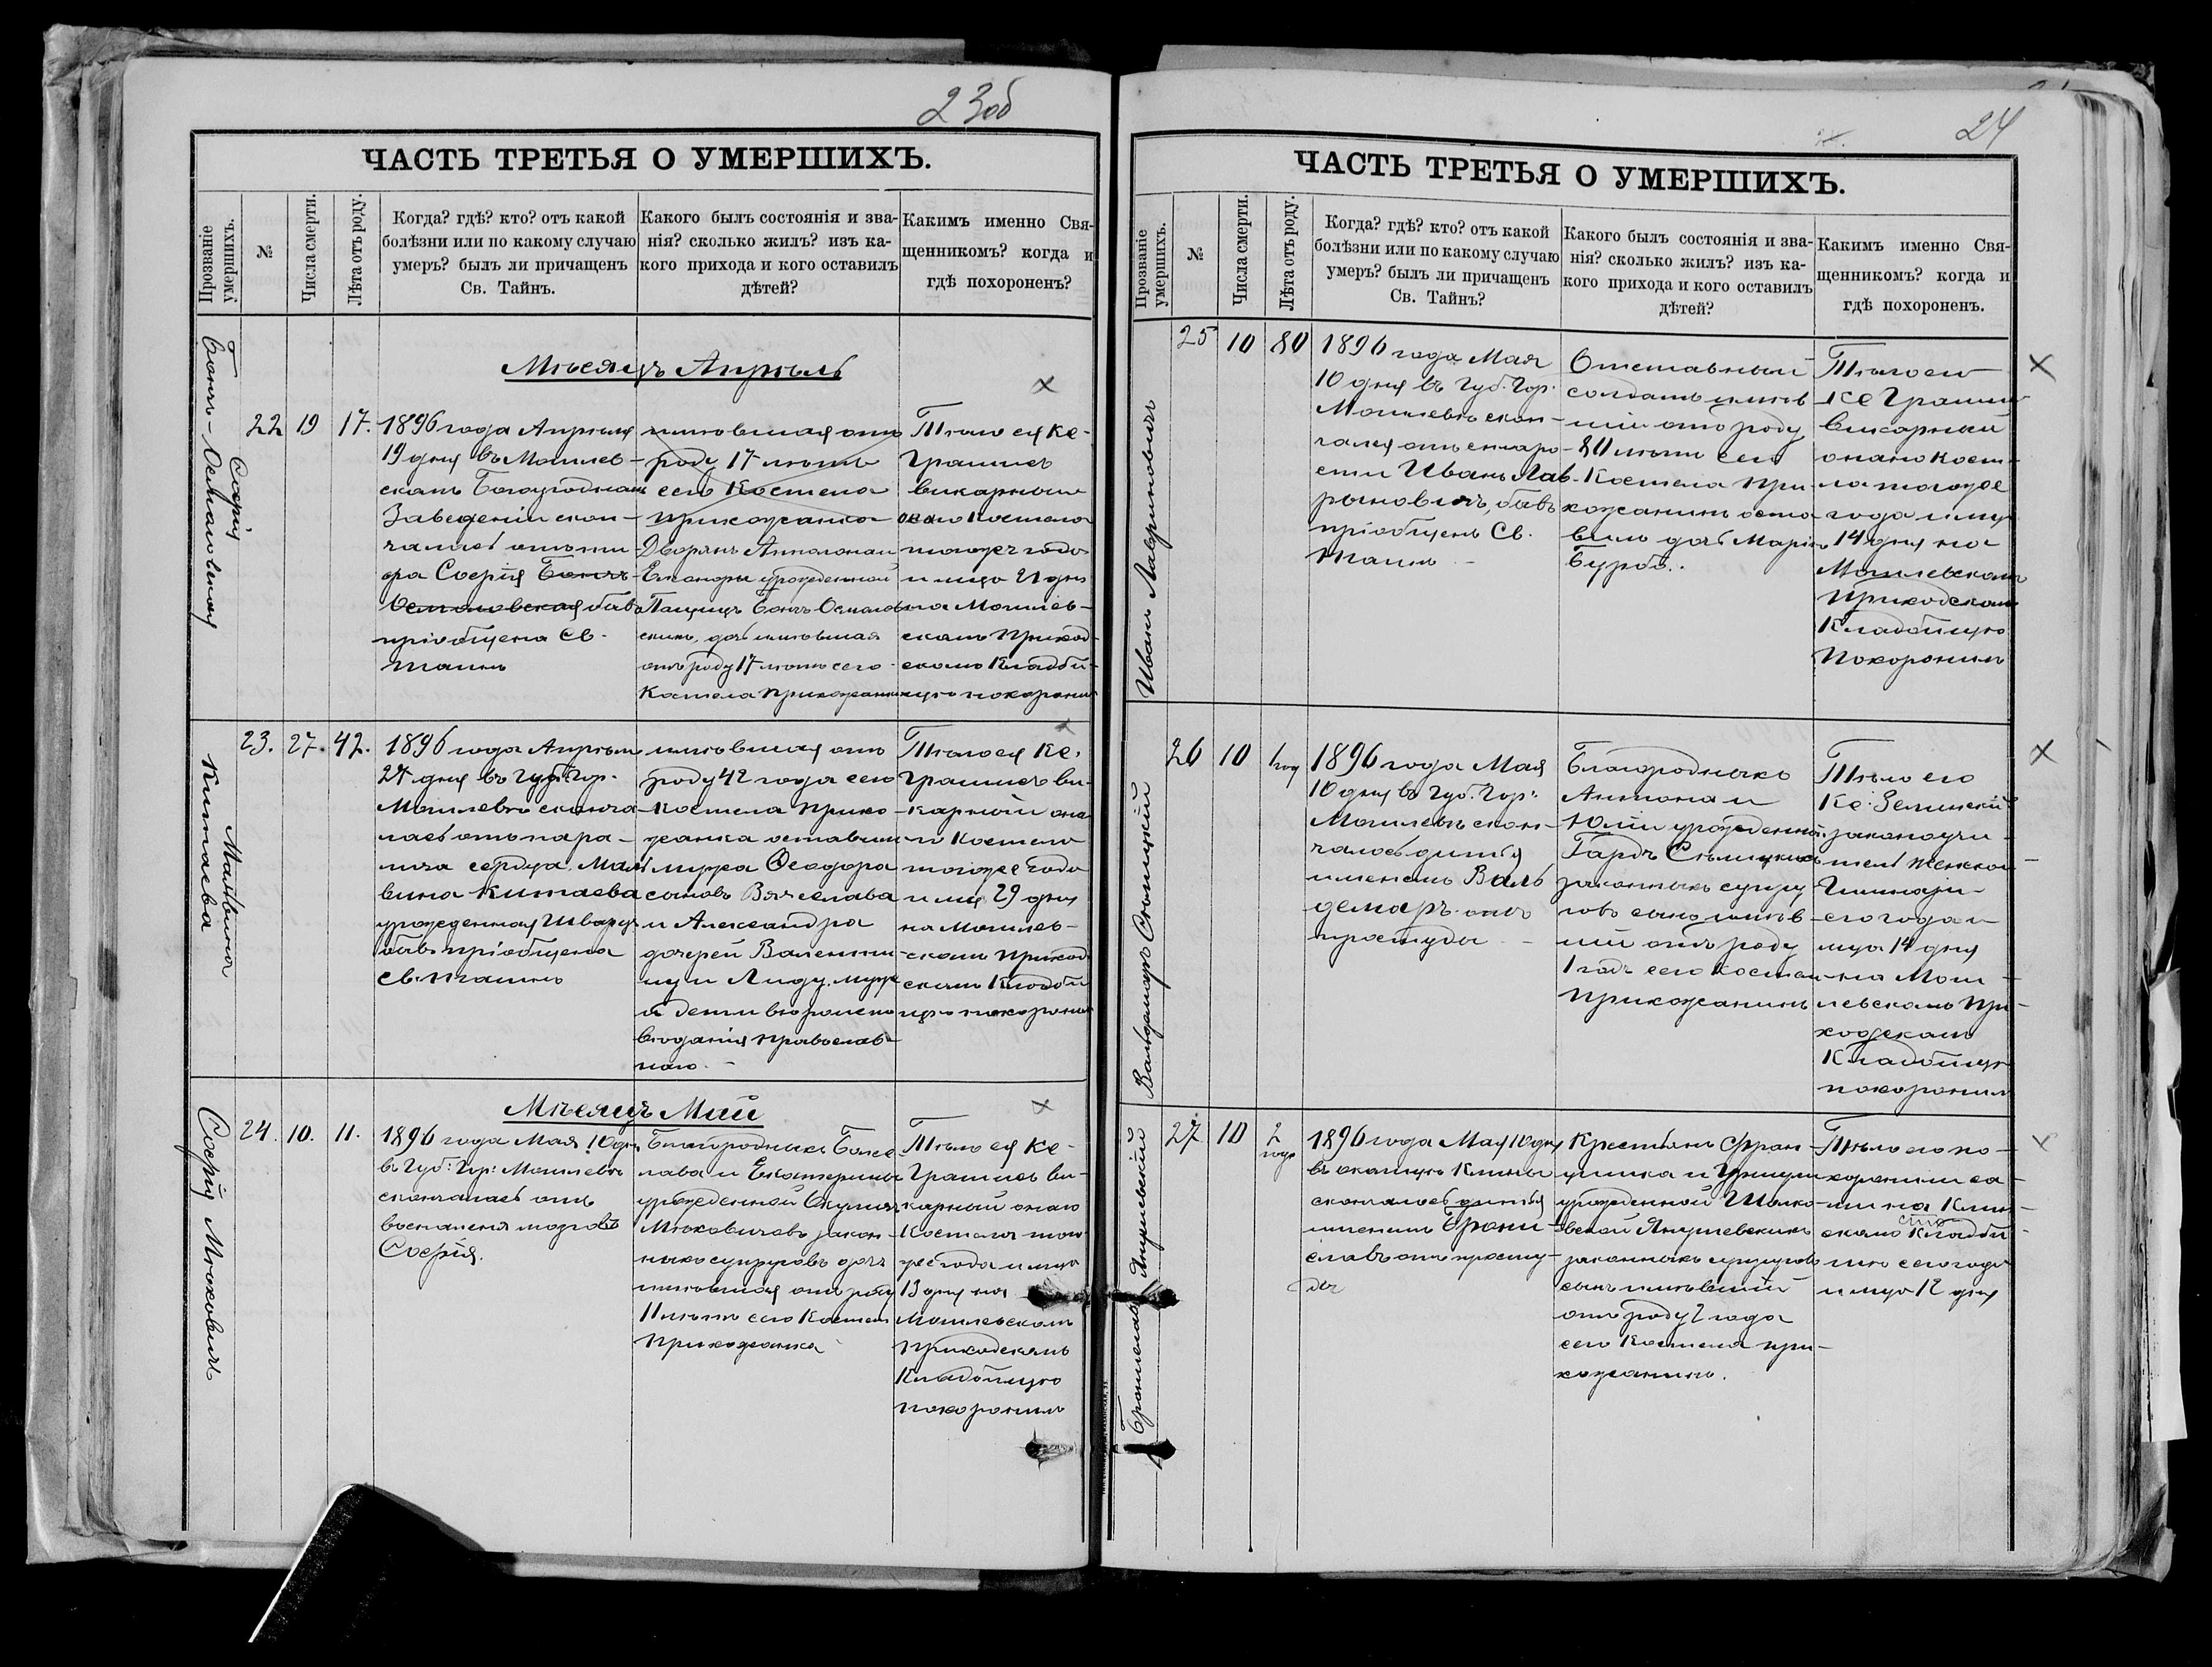 23об
ЧАСТЬ ТРЕТЬЯ О УМЕРШИХЪ.
Прозваніе умершихъ.
№
Числа смерти.
Лѣта отъ роду.
Когда? гдѣ? кто? отъ какой
болѣзни или по какому случаю
умеръ? былъ ли причащенъ
Св. Тайнъ.
Какого былъ состоянія и зва-
нія? сколько жилъ? изъ ка-
кого прихода и кого оставилъ
дѣтей?
Какимъ именно Свя-
щенникомъ? когда и
гдѣ похороненъ?
Мѣсяцъ Апрѣль
Софія
22
19
17.
1896 года Апрѣля
19 дня въ Могилев-
скомъ Богоугодномъ
Заведеніи скон-
чалась отъ ти-
фа Софія
была
пріобщена Св.
Таинъ
жившая отъ
роду 17 лѣтъ
сего Костела
прихожанка
Дворянъ Аполлона и
Елеоноры урожденной
дочь жившая
отъ роду 17 лѣтъ сего
Костела прихожанка
Тѣло ея Кс.
викарный
онаго Костела
тогоже года
и мца 21 дня
на Могилев-
скомъ приход-
скомъ кладби-
щѣ похоронилъ
Мальвина
Китаева
23.
27.
42.
1896 года Апрѣля
27 дня въ Губ. Гор.
Могилевѣ сконча
лась отъ пара-
лича сердца Маль
вина Китаева
урожденная Шварцъ
бывъ пріобщена
Св. Таинъ
жившая отъ
роду 42 года сего
Костела прихо
жанка оставила
мужа Ѳеодора
сыновъ Вячеслава
и Александра
дочерей Валенти
ну и Лиду. мужъ
и дети
православ-
наго.
Тѣло ея Кс.
ви-
карный она
го Костела
тогоже года
и мца 29 дня
на Могилев-
скомъ приход
скомъ кладби
щѣ похоронилъ
Мѣсяцъ Май
24.
10.
11.
1896 года Мая 10 дня
въ Губ: Гор: Могилевѣ
скончалась отъ
воспаленія мозговъ
Софія.
Благородныхъ Болес
лава и Екатерины
урожденной
закон-
ныхъ супруговъ дочь
жившая отъ роду
11 лѣтъ сего Костела
прихожанка
Тѣло ея Кс.
ви-
карный онаго
Костела того
же года и мца
13 дня на
Могилевскомъ
приходскомъ
Кладбищѣ
похоронилъ
24
ЧАСТЬ ТРЕТЬЯ О УМЕРШИХЪ.
Прозваніе умершихъ.
№
Числа смерти.
Лѣта отъ роду.
Когда? гдѣ? кто? отъ какой
болѣзни или по какому случаю
умеръ? былъ ли причащенъ
Св. Тайнъ?
Какого былъ состоянія и зва-
нія? сколько жилъ? изъ ка-
кого прихода и кого оставилъ
дѣтей?
Какимъ именно Свя-
щенникомъ? когда и
гдѣ похороненъ.
Иванъ Лавриновичъ
25
10
80
1896 года Мая
10 дня въ Губ. Гор.
Могилевѣ скон-
чался отъ старо-
сти Иванъ Лав-
риновичъ, бывъ
пріобщенъ Св.
Таинъ
Отставный
солдатъ жив-
шій отъ роду
80 лѣтъ сего
Костела при-
хожанинъ оста-
вилъ дочь Марію
Тѣло его
Кс
викарный
онаго Косте-
ла тогоже
года и мца
14 дня на
Могилевскомъ
приходскомъ
Кладбищѣ
похоронилъ
26
10
1 год
1896 года Мая
10 дня въ Губ. Гор.
Могилевѣ скон-
чалось дитя
именемъ Валь
демаръ отъ
простуды
Благородныхъ
Антона и
Юліи урожденной
законныхъ супру
говъ сынъ жив
шій отъ роду
1 годъ сего костела
прихожанинъ
Тѣло его
Кс: Зелинскій
законоучи-
тель Женской
Гимназіи
сего года и
мца 14 дня
на Моги-
левскомъ при-
ходскомъ
Кладбищѣ
похоронилъ
Брониславъ Янушевскій
27
10
2
года
1896 года Мая 10 дня
въ околицѣ Клины
скончалось дитя
именемъ Брони-
славъ отъ просту-
ды
Крестьянъ Фран-
цишка и
урожденной
Янушевскихъ
законныхъ супруговъ
сынъ жившій
отъ роду 2 года
сего Костела при-
хожанинъ.
Тѣло его по-
хоронили са-
ми на Клин-
скомъ Кладби
щѣ сего года
и мца 12 дня